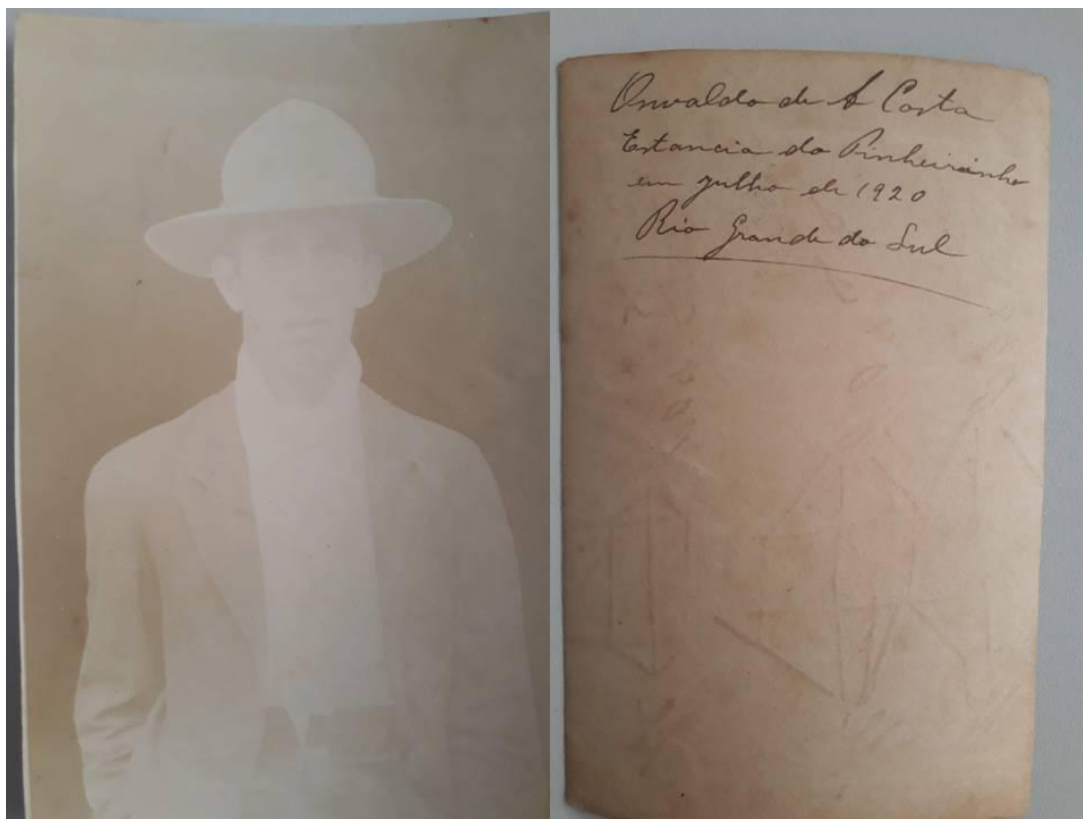 Onvaldo de A Costa
Estancia do Pinheirinho
em julho de 1920
Rio Grande do Sul